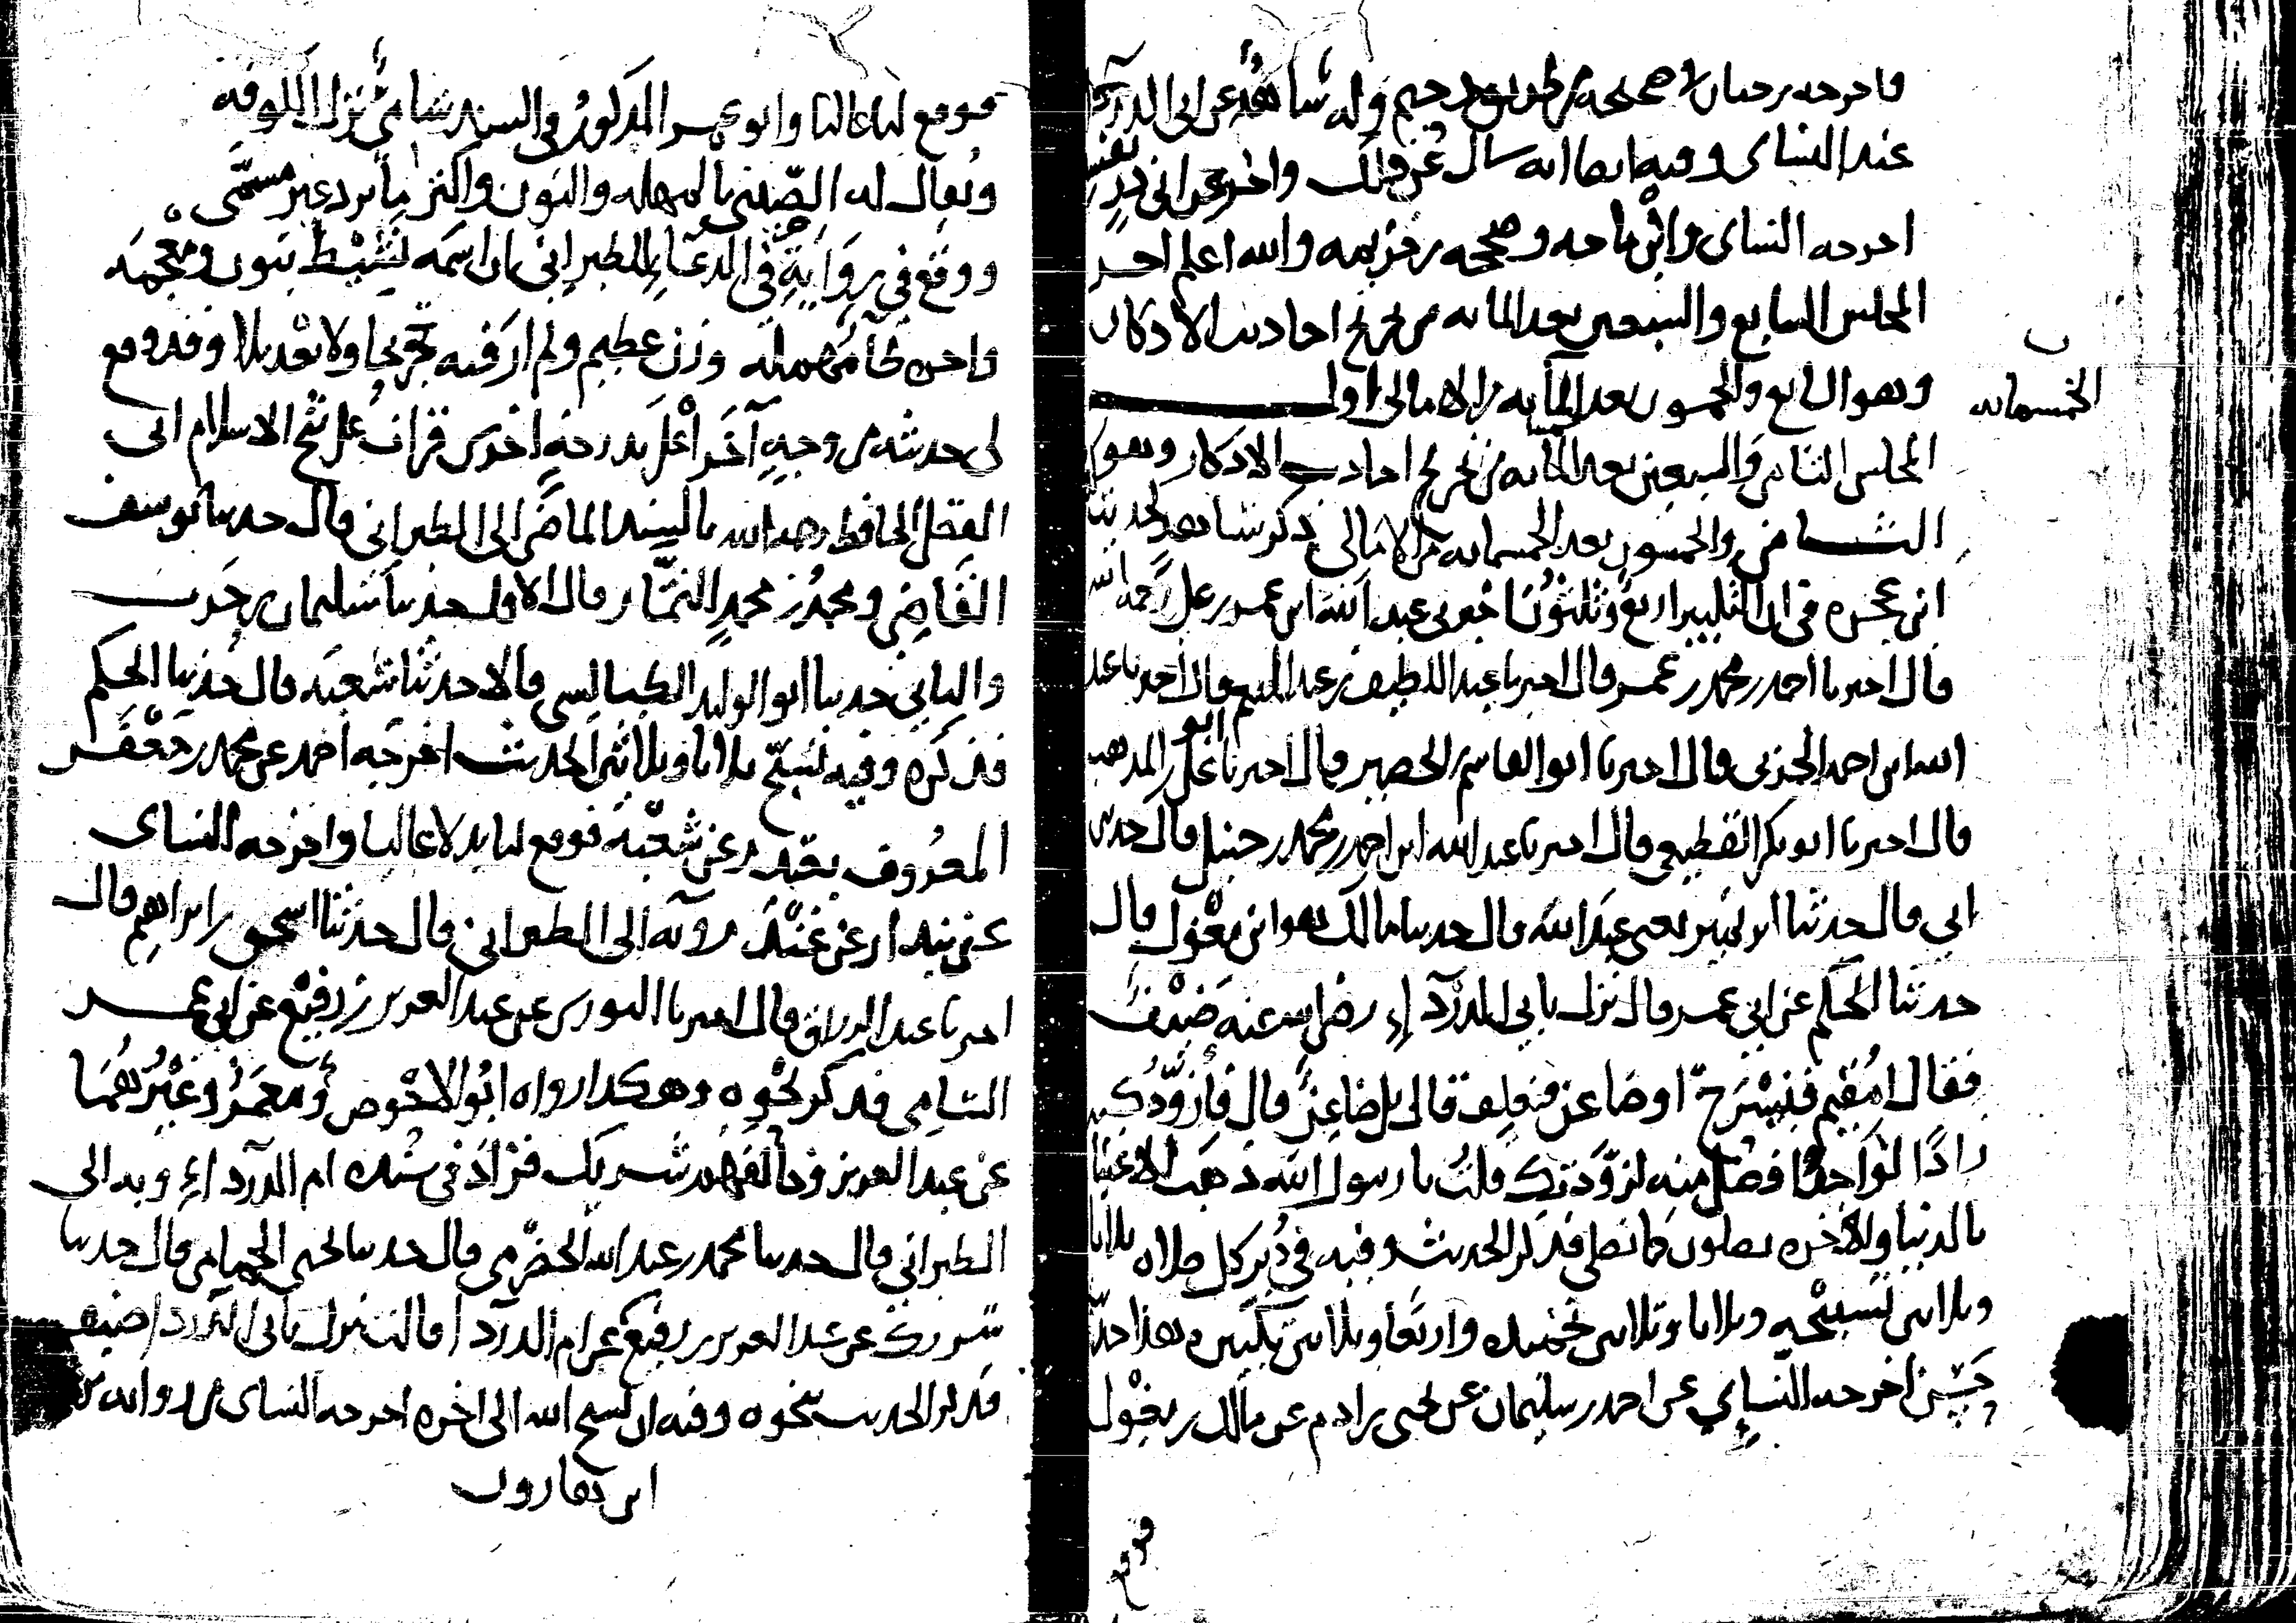 فاخرجه بن حبان في صحيحه من طريق بن رحيم وله شاهد عن ابي الدرداء
عند النساي وفيه ايضا انه سال عن ذلك واخر عن ابي ذر
احرجه النساى وابن ماجه وصححه بن خزيمه والله اعلم اخر
المجلس السابع والسبعين بعد المايه من تخريج احاديث الاذكار
وهو السابع والخمسون بعد المايه من الامالى اول
الخمسمايه
المجلس الثامن والسبعين بعد المايه من تخريج احاديث الاذكار وهو
الثامن والخمسون بعد الخمسمايه من الامالى ذكر شاهد لحديث
ابن عجره في ان التكبير اربع وثلثون اخبرنى عبد الله ابن عمر بن على رحمه الله
قال اخبرنا احمد بن محمد بن عمر قال اخبرنا عبد اللطيف بن عبد المنعم قال اخبرنا عبد
الله بن احمد الحربى قال اخبرنا ابو القاسم بن الحصين قال اخبرنا ابو على بن المذهب
قال اخبرنا ابو بكر القطيعي قال اخبرنا عبد الله ابن احمد بن محمد بن حنبل قال حدثني
ابي قال حدثنا ابن نمير يعنى عبد الله قال حدثنا مالك هو ابن مغول قال
حدثنا الحكم عن ابي عمر قال نزل بابي الدرداء رضي الله عنه ضيف
فقال امقيم فنسرح او ظاعن فنعلف قال بل ظاعن قال فازودك
زادا لو اجد ما افضل منه لزودتك قلت يا رسول الله ذهب الاغنيا
بالدنيا والاخره يصلون كما نصلي فذكر الحديث وفيه في دبر كل صلاه ثلاثا
وثلاثين تسبيحه وثلاثا وثلاثين تحميده واربعا وثلاثين تكبيره هذا حديث
حسن اخرجه النسايي عن احمد بن سليمان عن يحيى بن ادم عن مالك بن مغول
فوقع
فوقع لنا عاليا وابو عمر المذكور في السند شامي نزل الكوفه
ويقال له الصيني بالمهمله والنون واكثر ما يرد غير مسمى
ووقع في رواية في الدعاء للطبراني بان اسمه نشيط بنون ومعجمه
واخره طاء مهمله وزن عظيم ولم ار فيه تجريحا ولا تعديلا وقد وقع
لي حديثه من وجه آخر اعلى بدرجه اخرى قرات على شيخ الاسلام ابى
الفضل الحافظ رحمه الله بالسند الماضي الى الطبراني قال حدثنا يوسف
القاضي ومحمد بن محمد التمار قال الاول حدثنا سليمان بن حرب
والثاني حدثنا ابو الوليد الطيالسي قالا حدثنا شعبه قال حدثنا الحكم
فذكره وفيه تسبح ثلاثا وثلاثين الحديث اخرجه احمد عن محمد بن جعفر
المعروف بغندر عن شعبة فوقع لنا بدلا عاليا واخرجه النساى
عن بندار عن غندر وبه الى الطبراني قال حدثنا اسحق بن ابراهيم قال
اخبرنا عبد الرزاق قال اخبرنا الثورى عن عبد العزيز بن رفيع عن ابي عمر
الشامي فذكر نحوه وهكذا رواه ابو الاحوص ومعمر وغيرهما
عن عبد العزيز وخالفهم شريك فزاد في سنده ام الدرداء وبه الى
الطبراني قال حدثنا محمد بن عبد الله الحضرمي قال حدثنا يحيى الحماني قال حدثنا
شريك عن عبد العزيز بن رفيع عن ام الدرداء قالت نزل بابى الدرداء ضيف
فذكر الحديث بنحوه وفيه ان تسبح الله الى اخره اخرجه النساى من روايه
ابن هارون